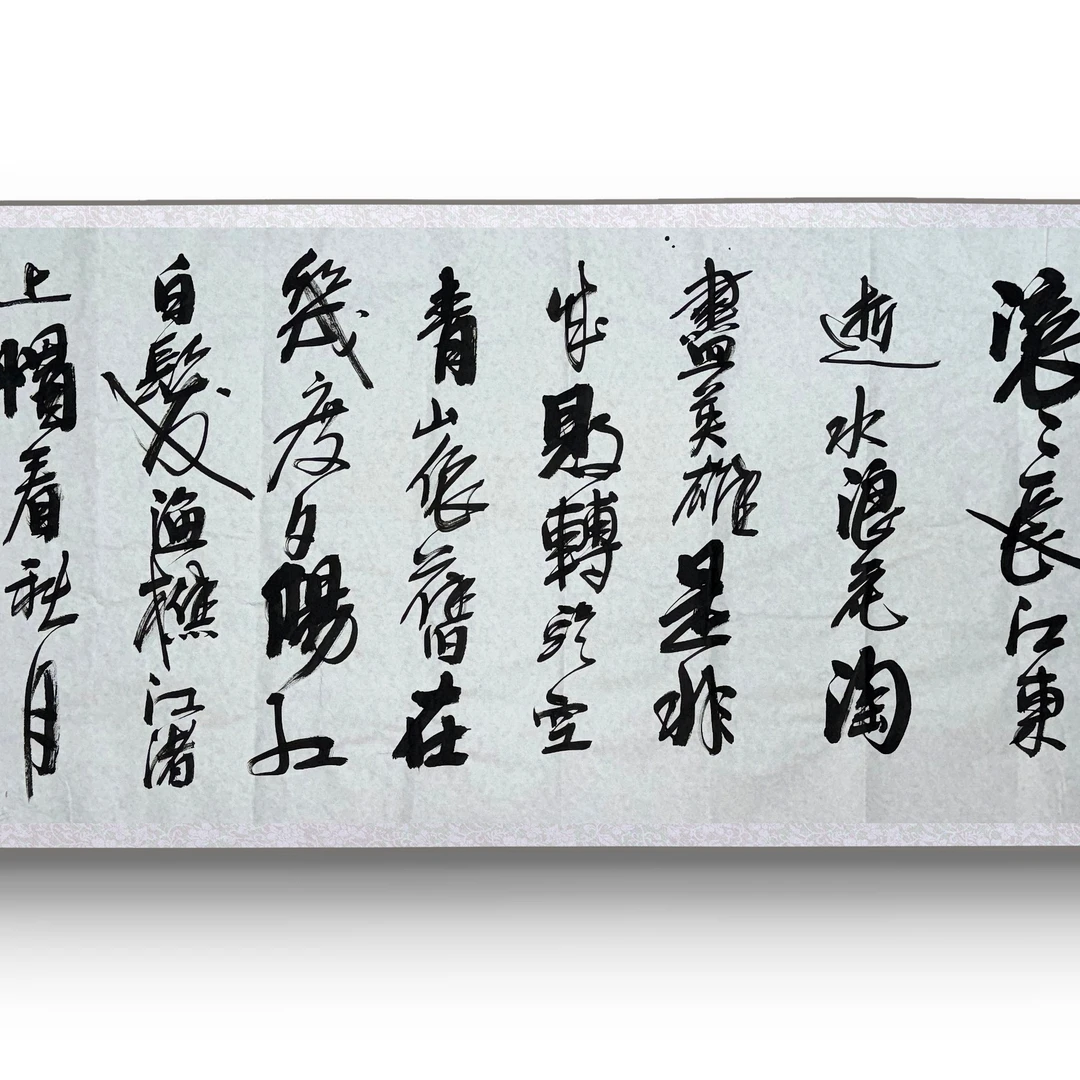 滚々長江東
逝水浪花淘
盡英雄是非
成敗轉頭空
青山依舊在
幾度夕陽紅
白髮漁樵江渚
上慣看秋月